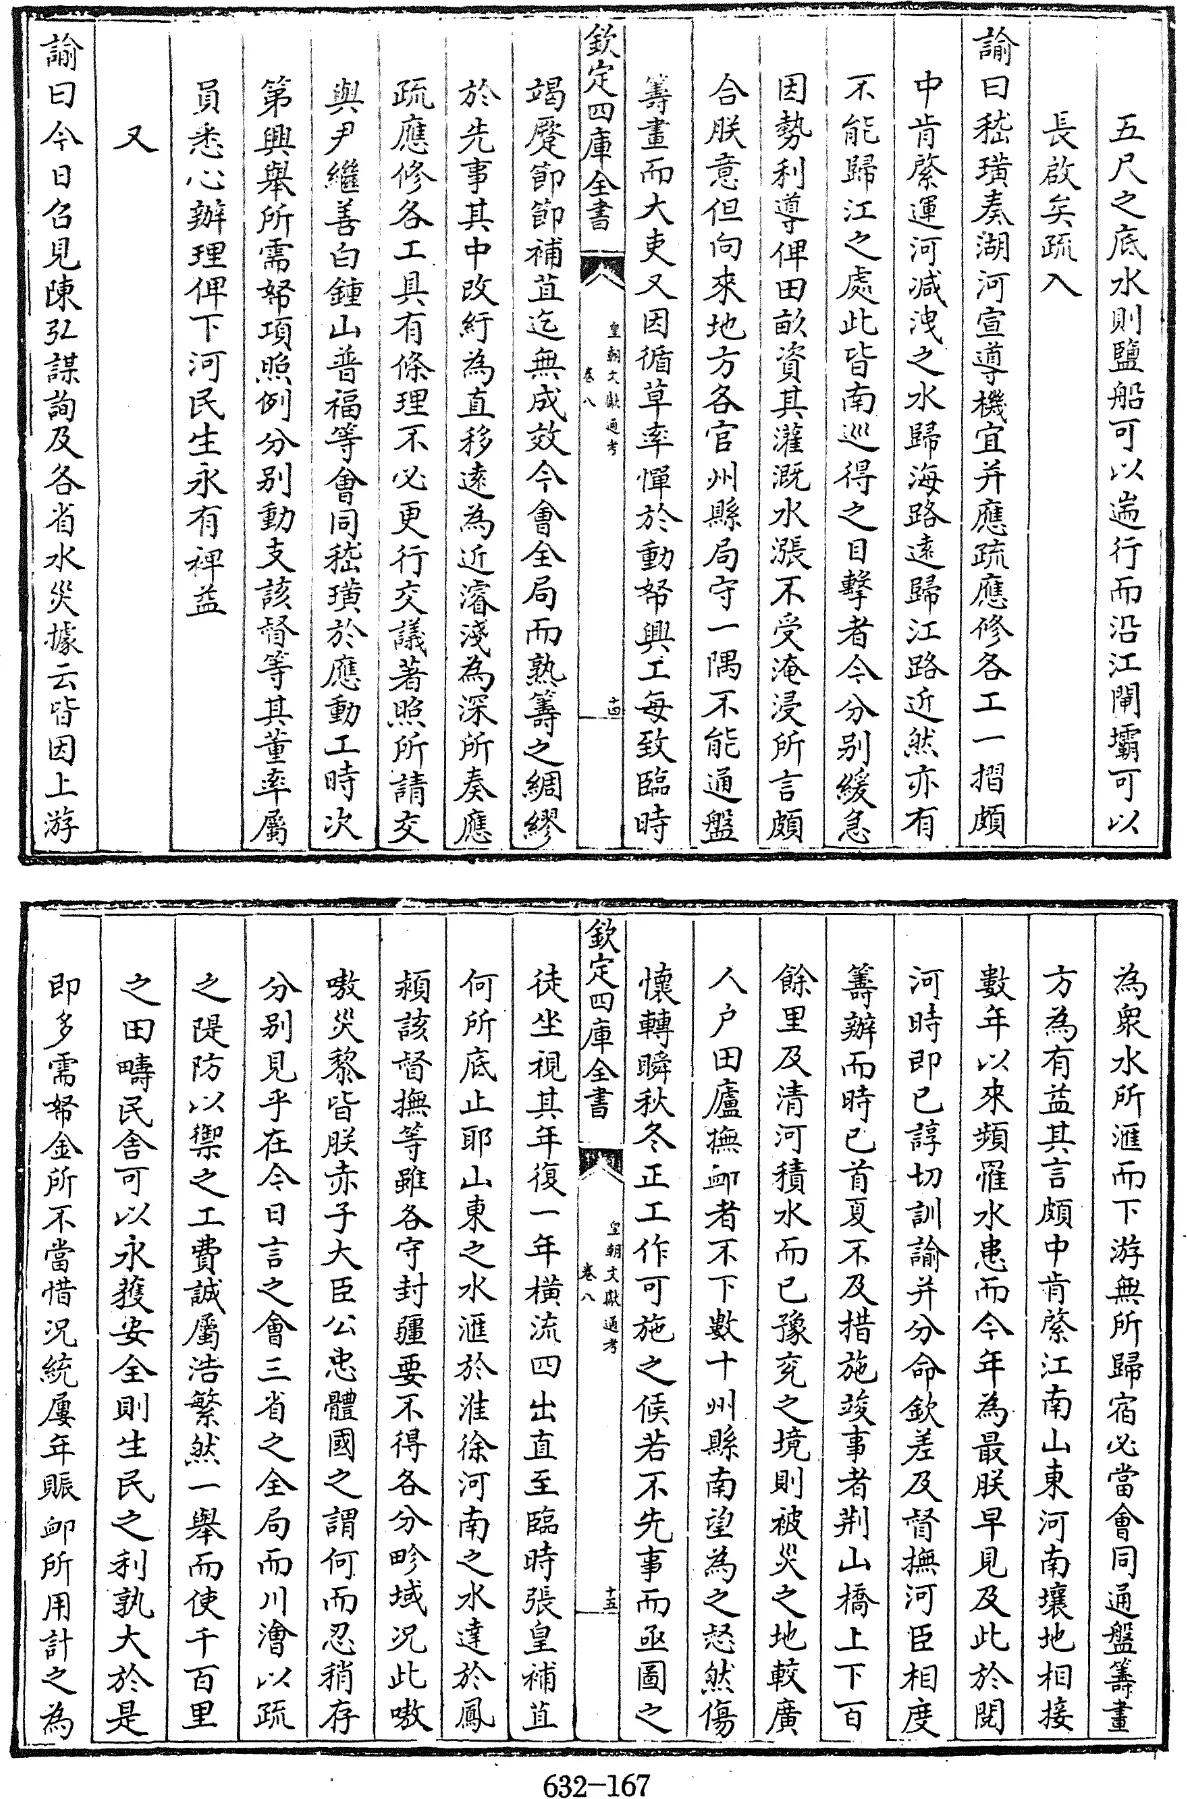 五尺之底水則鹽船可以遄行而沿江閘壩可以
長啟矣疏入
諭曰嵇璜奏湖河宣導機宜并應疏應修各工一摺頗
中肯綮運河減洩之水歸海路遠歸江路近然亦有
不能歸江之處此皆南巡得之目擊者今分别緩急
因勢利導俾田畝資其灌溉水漲不受淹浸所言頗
合朕意但向來地方各官州縣局守一隅不能通盤
籌畫而大吏又因循草率憚於動帑興工每致臨時
欽定四庫全書
皇朝文獻通考
卷八
十四
竭蹷節節補苴迄無成效今會全局而熟籌之綢繆
於先事其中改紆為直移遠為近濬淺為深所奏應
疏應修各工具有條理不必更行交議著照所請交
與尹繼善白鍾山普福等會同嵇璜於應動工時次
第興舉所需帑項照例分别動支該督等其董率屬
員悉心辦理俾下河民生永有裨益
又
諭曰今日召見陳弘謀詢及各省水災據云皆因上游
為衆水所滙而下游無所歸宿必當會同通盤籌畫
方為有益其言頗中肯綮江南山東河南壤地相接
數年以來頻罹水患而今年為最朕早見及此於閱
河時即已諄切訓諭并分命欽差及督撫河臣相度
籌辦而時已首夏不及措施竣事者荆山橋上下百
餘里及清河積水而已豫兗之境則被災之地較廣
人户田廬撫卹者不下數十州縣南望為之惄然傷
懷轉瞬秋冬正工作可施之候若不先事而亟圖之
欽定四庫全書
皇朝文獻通考
卷八
十五
徒坐視其年復一年橫流四出直至臨時張皇補苴
何所底止耶山東之水滙於淮徐河南之水達於鳳
潁該督撫等雖各守封疆要不得各分畛域况此嗷
嗷災黎皆朕赤子大臣公忠體國之謂何而忍稍存
分别見乎在今日言之會三省之全局而川澮以疏
之隄防以禦之工費誠屬浩繁然一舉而使千百里
之田疇民舍可以永獲安全則生民之利孰大於是
即多需帑金所不當惜况統屢年賑卹所用計之為
632-167